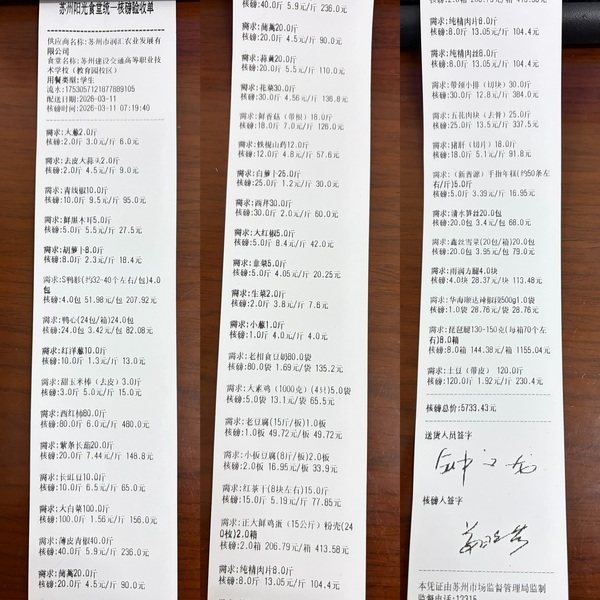 苏州阳光食堂统一核磅验收单
供应商名称:苏州市润汇农业发展有
限公司
食堂名称:苏州建设交通高等职业技
术学校(教育园校区)
用餐类型:学生
流水:1753057121877889105
配送日期:2026-03-11
核磅时间:2026-03-11 07:19:40
需求:大葱2.0斤
核磅:2.0斤 3.0元/斤 6.0元
需求:去皮大蒜头2.0斤
核磅:2.0斤 4.5元/斤 9.0元
需求:青线椒10.0斤
核磅:10.0斤 9.5元/斤 95.0元
需求:鲜黑木耳5.0斤
核磅:5.0斤 5.5元/斤 27.5元
需求:胡萝卜8.0斤
核磅:8.0斤 2.3元/斤 18.4元
需求:S鸭肫(约32-40个左右/包)4.0
包
核磅:4.0包 51.98元/包 207.92元
需求:鸭心(24包/箱)24.0包
核磅:24.0包 3.42元/包 82.08元
需求:红洋葱10.0斤
核磅:10.0斤 1.3元/斤 13.0元
需求:甜玉米棒(去皮)3.0斤
核磅:3.0斤 5.0元/斤 15.0元
需求:西红柿80.0斤
核磅:80.0斤 6.0元/斤 480.0元
需求:紫条长茄20.0斤
核磅:20.0斤 7.44元/斤 148.8元
需求:长豇豆10.0斤
核磅:10.0斤 6.5元/斤 65.0元
需求:大白菜100.0斤
核磅:100.0斤 1.56元/斤 156.0元
需求:薄皮青椒40.0斤
核磅:40.0斤 5.9元/斤 236.0元
需求:茼蒿20.0斤
核磅:20.0斤 4.5元/斤 90.0元
核磅:40.0斤 5.9元/斤 236.0元
需求:茼蒿20.0斤
核磅:20.0斤 4.5元/斤 90.0元
需求:蒜薹20.0斤
核磅:20.0斤 5.5元/斤 110.0元
需求:花菜30.0斤
核磅:30.0斤 4.56元/斤 136.8元
需求:鲜香菇(带根)18.0斤
核磅:18.0斤 7.0元/斤 126.0元
需求:铁棍山药12.0斤
核磅:12.0斤 4.8元/斤 57.6元
需求:白萝卜25.0斤
核磅:25.0斤 1.2元/斤 30.0元
需求:西芹30.0斤
核磅:30.0斤 2.0元/斤 60.0元
需求:大红椒5.0斤
核磅:5.0斤 8.4元/斤 42.0元
需求:韭菜5.0斤
核磅:5.0斤 4.05元/斤 20.25元
需求:生菜2.0斤
核磅:2.0斤 3.8元/斤 7.6元
需求:小葱1.0斤
核磅:1.0斤 4.0元/斤 4.0元
需求:老相食豆奶80.0袋
核磅:80.0袋 1.69元/袋 135.2元
需求:大素鸡(1000克)(4只)5.0袋
核磅:5.0袋 13.1元/袋 65.5元
需求:老豆腐(15斤/板)1.0板
核磅:1.0板 49.72元/板 49.72元
需求:小板豆腐(8斤/板)2.0板
核磅:2.0板 16.95元/板 33.9元
需求:红茶干(8块左右)15.0斤
核磅:15.0斤 5.19元/斤 77.85元
需求:正大鲜鸡蛋(15公斤)粉壳(24
0枚)2.0箱
核磅:2.0箱 206.79元/箱 413.58元
需求:纯精肉片8.0斤
核磅:8.0斤 13.05元/斤 104.4元
需求:纯精肉片8.0斤
核磅:8.0斤 13.05元/斤 104.4元
需求:纯精肉丝8.0斤
核磅:8.0斤 13.05元/斤 104.4元
需求:带颈小排(切块)30.0斤
核磅:30.0斤 12.8元/斤 384.0元
需求:五花肉块(去骨)25.0斤
核磅:25.0斤 13.5元/斤 337.5元
需求:猪肝(切片)18.0斤
核磅:18.0斤 5.1元/斤 91.8元
需求:(新香源)手指年糕(约50条左
右/斤)5.0斤
核磅:5.0斤 3.39元/斤 16.95元
需求:清水笋丝20.0包
核磅:20.0包 3.4元/包 68.0元
需求:鑫丝雪菜(20包/箱)20.0包
核磅:20.0包 3.95元/包 79.0元
需求:雨润方腿4.0块
核磅:4.0块 28.37元/块 113.48元
核磅:1.0袋 28.76元/袋 28.76元
需求:琵琶腿130-150克(每箱70个左
右)8.0箱
核磅:8.0箱 144.38元/箱 1155.04元
需求:土豆(带皮)120.0斤
核磅:120.0斤 1.92元/斤 230.4元
核磅总价:5733.43元
送货人员签字
核磅人签字
本凭证由苏州市场监督管理局监制
监督电话:12315